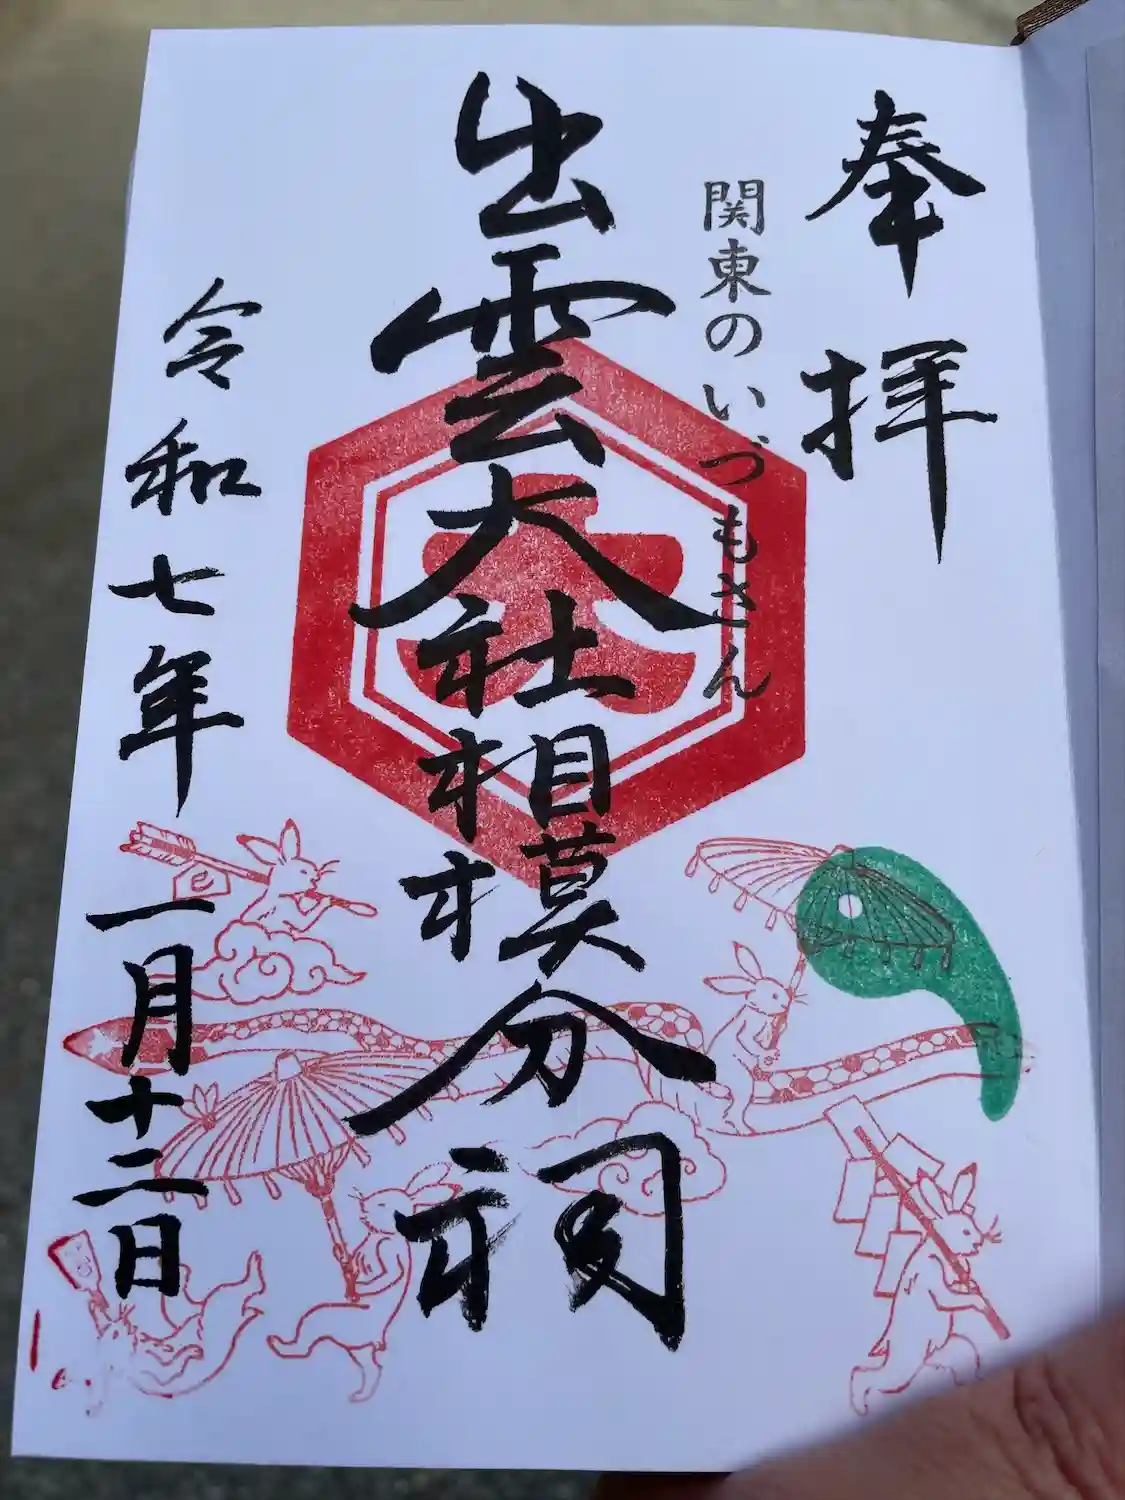 奉拝
関東のいづもさん
出雲大社相模分祠
大
令和七年一月十二日
巳